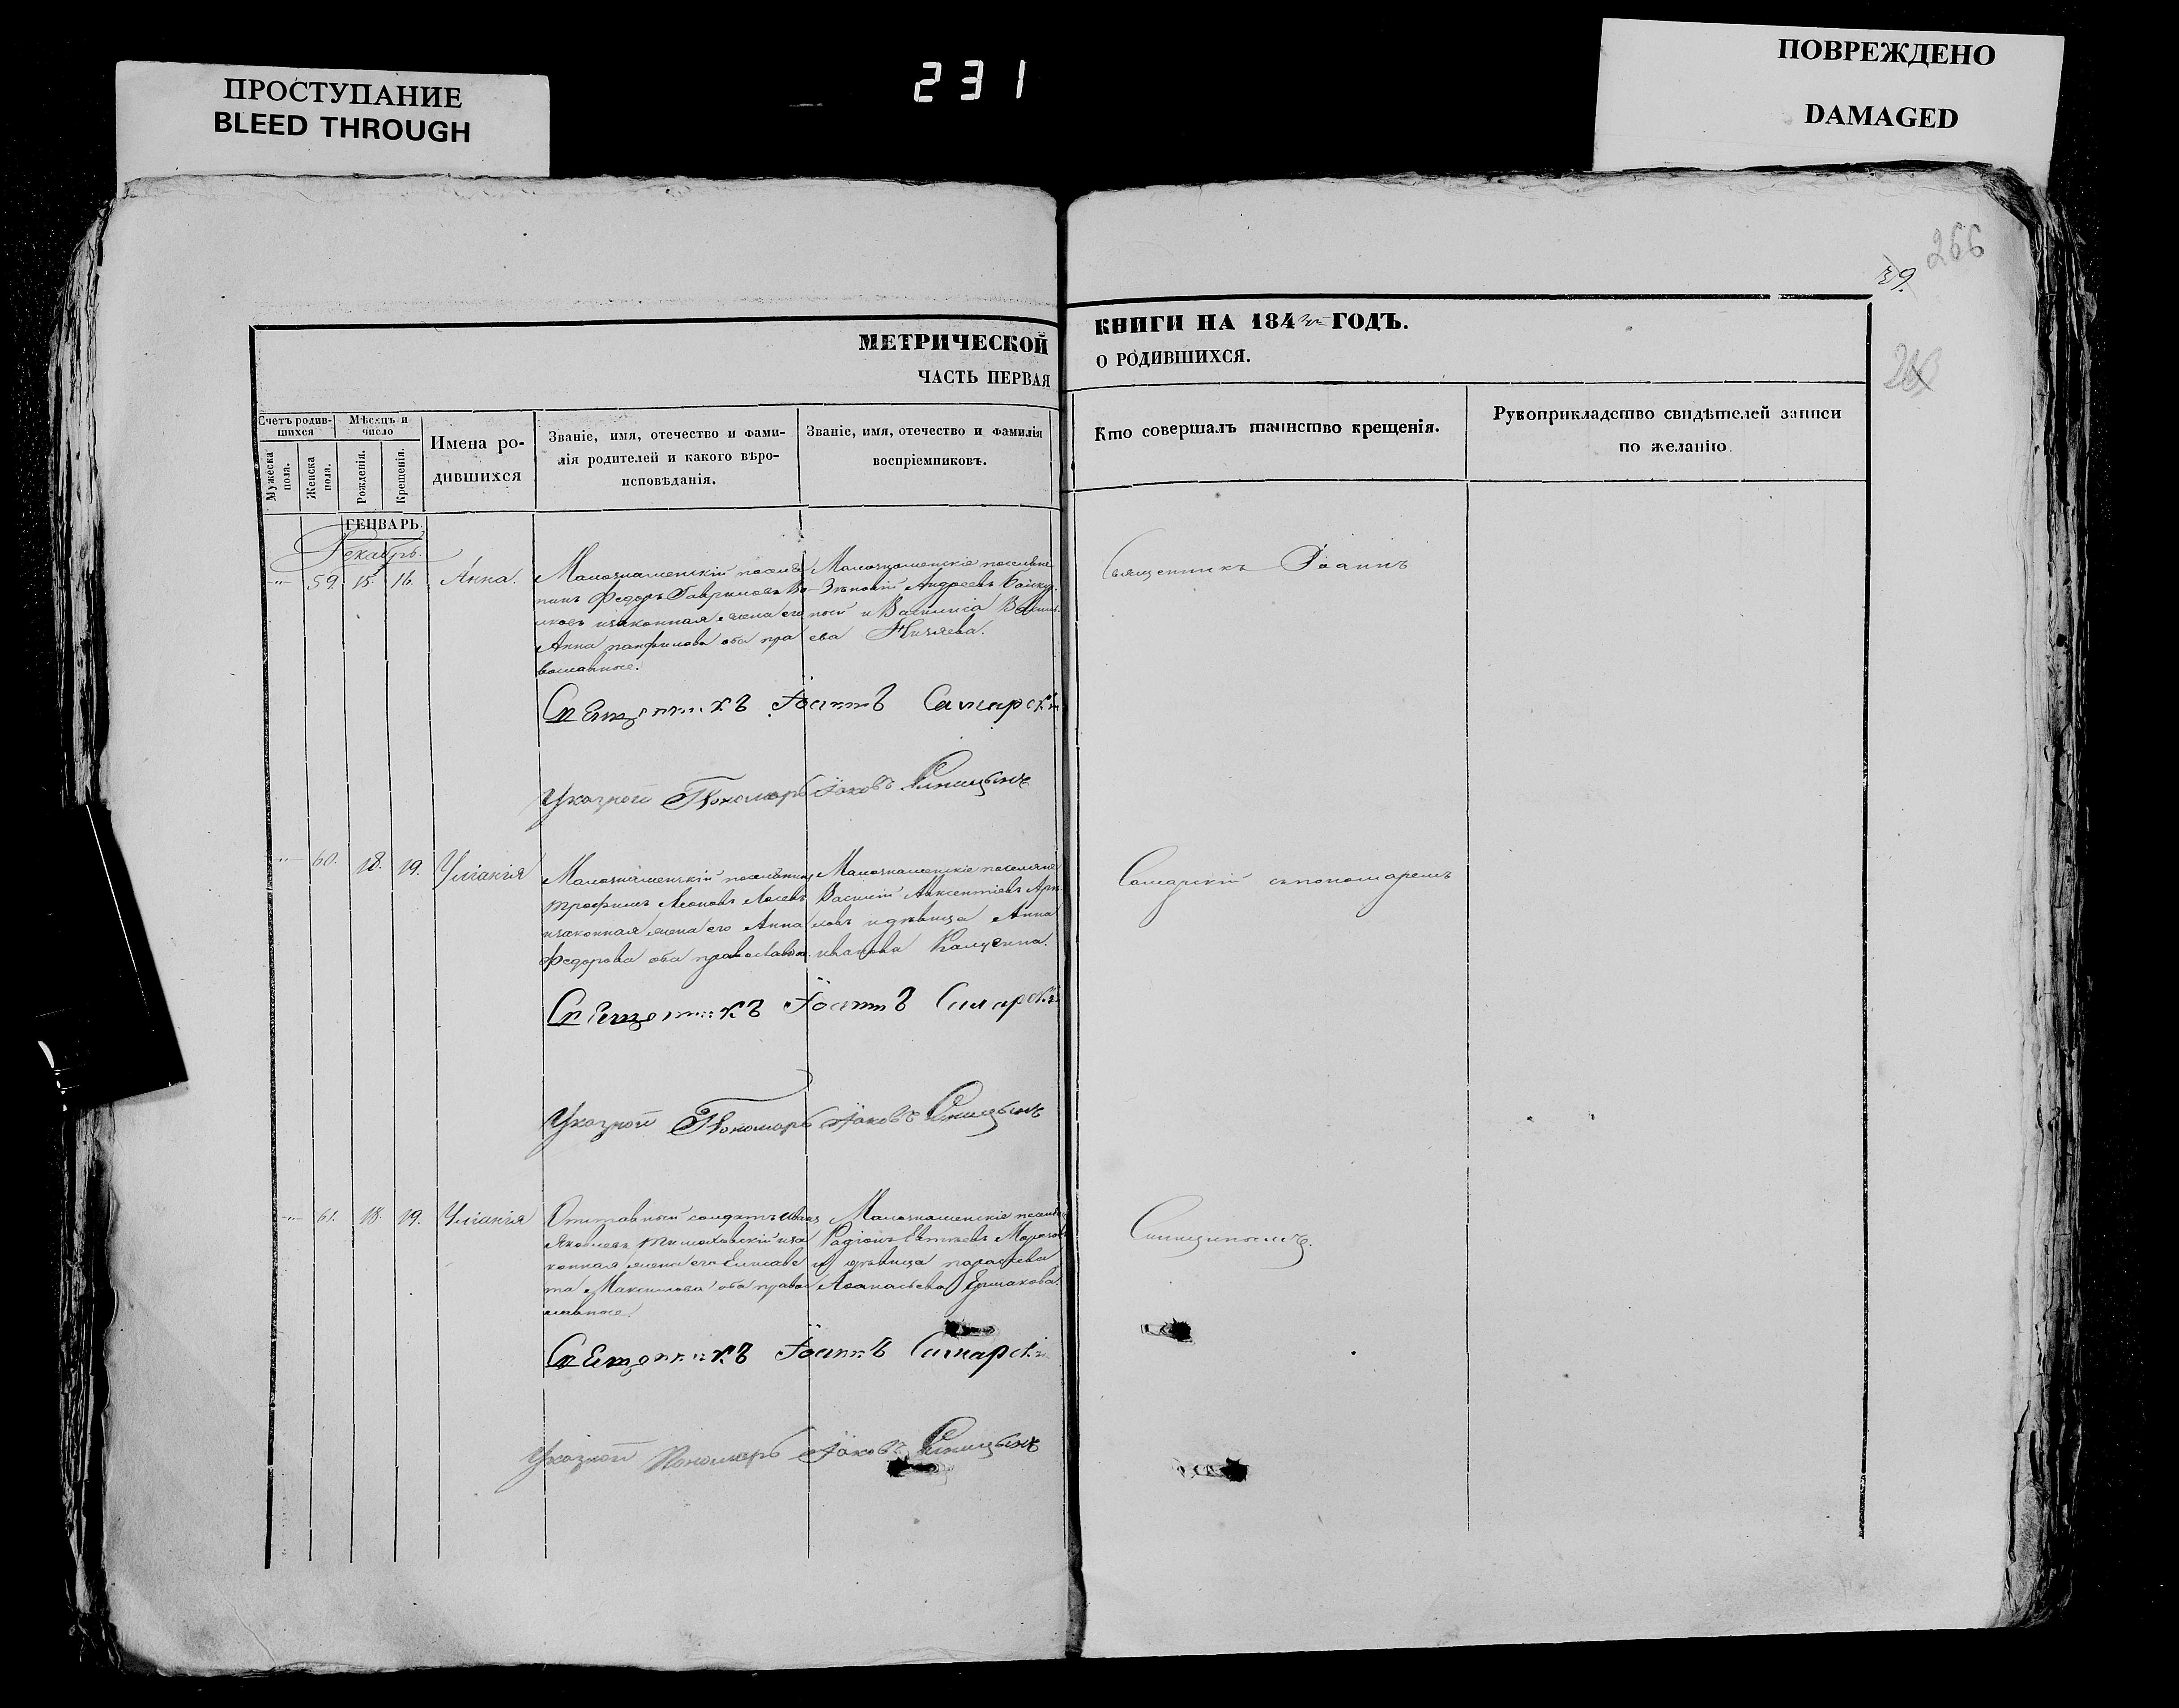 ПРОСТУПАНИЕ
BLEED THROUGH
231
ПОВРЕЖДЕНО
DAMAGED
266
39.
МЕТРИЧЕСКОЙ
ЧАСТЬ ПЕРВАЯ
КНИГИ НА 184 ГОДЪ.
О РОДИВШИХСЯ.
Счетъ родившихся
Мужеска пола.
Женска пола.
Мѣсяцъ и число
Рожденія.
Крещенія.
Имена родившихся
Званіе, имя, отечество и фамилія родителей и какого вѣроисповѣданія.
Званіе, имя, отечество и фамилія воспріемниковъ.
Кто совершалъ таинство крещенія.
Рукоприкладство свидѣтелей записи по желанію.
ГЕНВАРЬ.
Декабрь.
59. 15. 16. Анна.
Малознаменскій поселя
нинъ Федоръ Гавриловъ
изаконная жена его
Анна панфилова оба пра
вославные.
Малознаменскіе поселяне
Зѣновій Андреевъ
и Василиса
ева
Священникъ Іоаннъ
Священникъ Іоаннъ Самарскій
Указной Пономарь Іаковъ Синицынъ
60. 18. 19. Уліанія
Малознаменскій поселянинъ
трофимъ Леоновъ Лосевъ
изаконная жена его Анна
Федорова оба православные.
Малознаменскіе поселяне
Василій Авксентіевъ
идѣвица Анна
иванова
Самарскій съпономаремъ
Священникъ Іоаннъ Самарскій
Указной Пономарь Іаковъ Синицынъ
61. 18. 19. Уліанія
Отставный солдатъ иванъ
Яковлевъ иза
конная жена его Елисаве
та Максимова оба право
славные.
Малознаменскіе поселяне
Радіонъ Морозовъ
и дѣвица параскева
Аѳанасьева Ермакова.
Синицынымъ.
Священникъ Іоаннъ Самарскій
Указной Пономарь Іаковъ Синицынъ